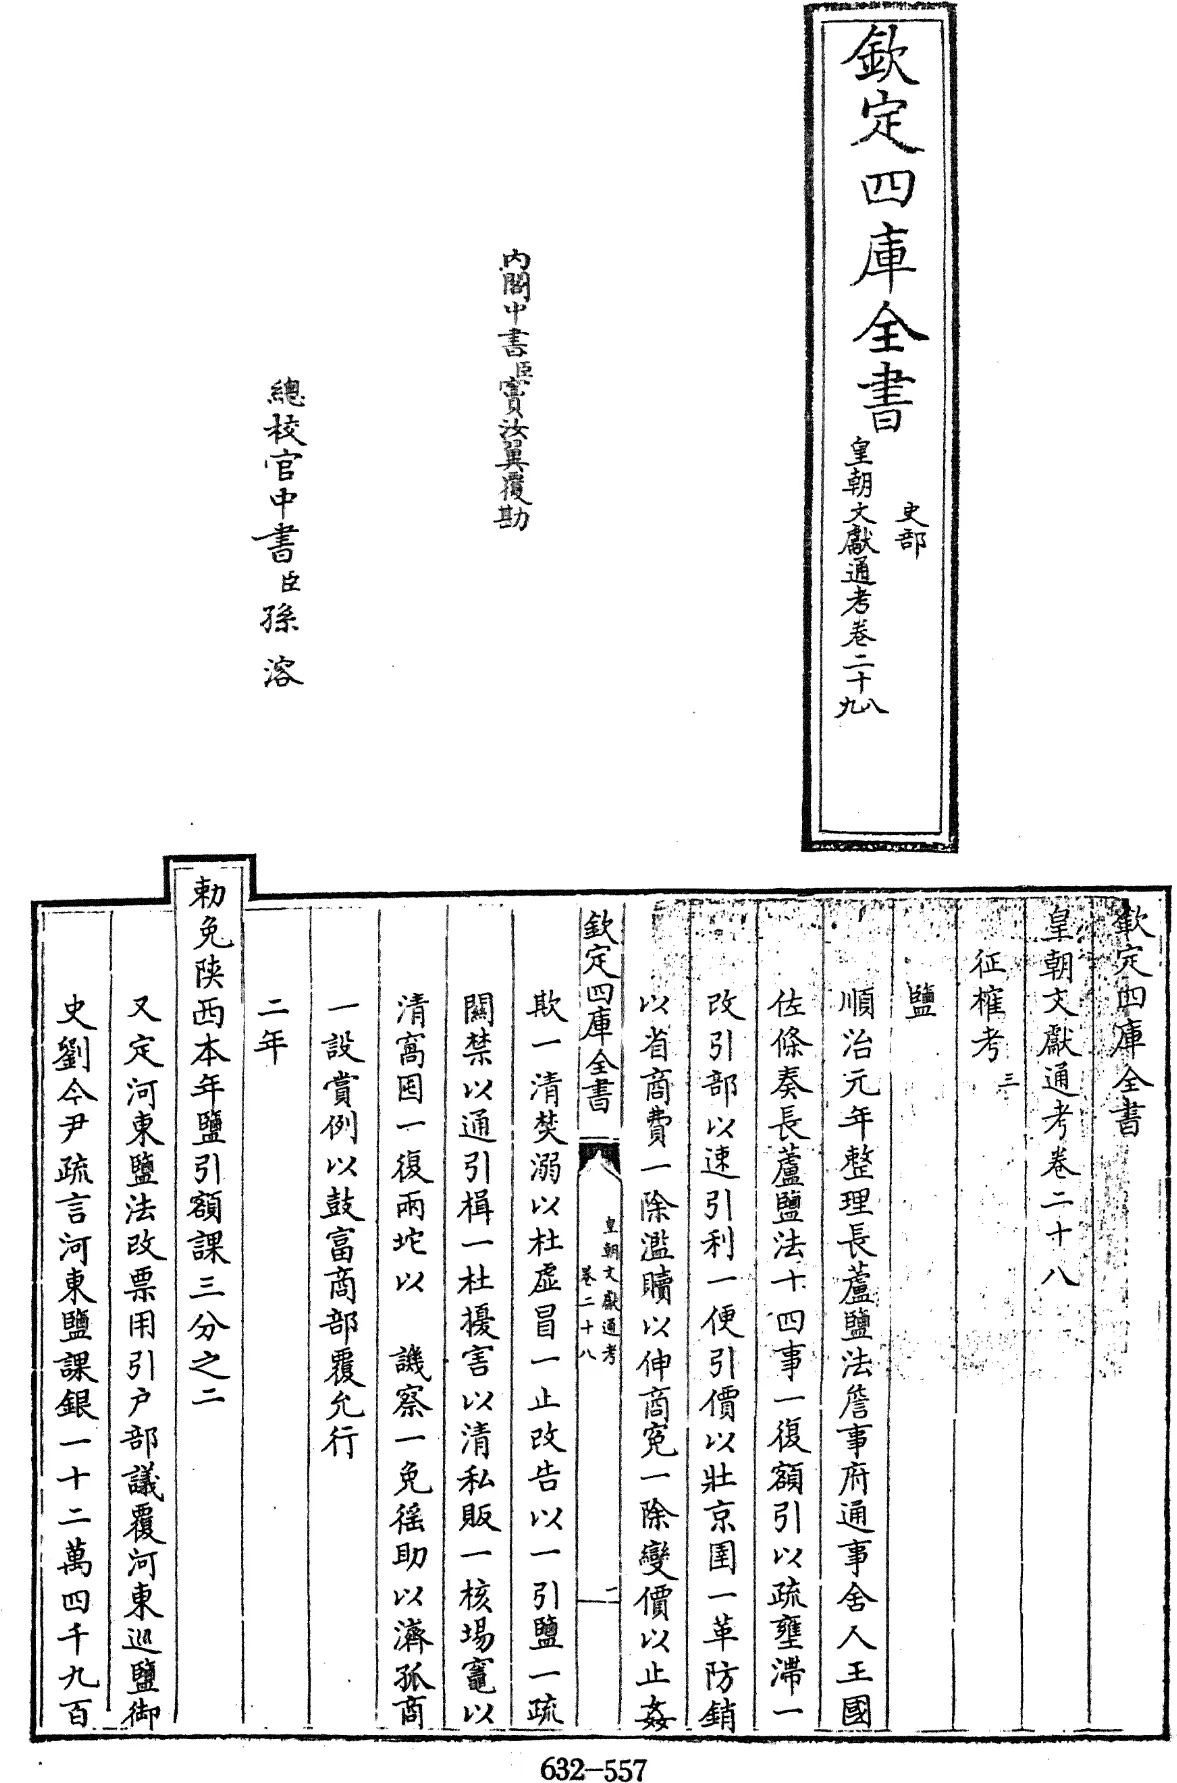 欽定四庫全書
史部
皇朝文獻通考卷二十八九
內閣中書臣竇汝翼覆勘
總校官中書臣孫溶
欽定四庫全書
皇朝文獻通考卷二十八
征榷考三
鹽
順治元年整理長蘆鹽法詹事府通事舍人王國
佐條奏長蘆鹽法十四事一復額引以疏壅滯一
改引部以速引利一便引價以壯京圉一革防銷
以省商費一除濫贖以伸商寃一除變價以止姦
欽定四庫全書
皇朝文獻通考
卷二十八
二
欺一清焚溺以杜虛冒一止改告以一引鹽一疏
關禁以通引楫一杜擾害以清私販一核場竈以
清窩囤一復兩坨以 譏察一免徭助以濟孤商
一設賞例以鼓富商部覆允行
二年
勅免陝西本年鹽引額課三分之二
又定河東鹽法改票用引户部議覆河東巡鹽御
史劉今尹疏言河東鹽課銀一十二萬四千九百
632-557